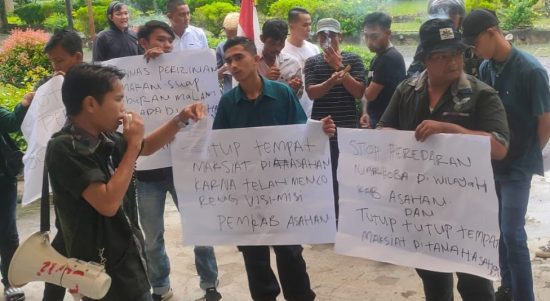 NAS PERIZINAN
TUTUP TEMPAT
MAKSIAT DIASAHAN
KARNA TELAH MENCO
RENG VISI-MISI
PEMKAB ASAHAN
STOP PEREDARAN
NARKOBA DI WILAYAH
KAB ASAHAN
DAN
TUTUP TUTUP TEMPAT
MAKSIAT DI TANAH ASA